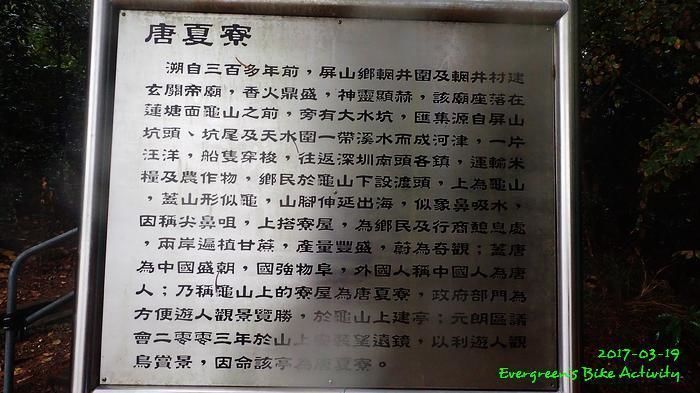 唐夏寮
溯自三百多年前，屏山鄉輞井圍及輞井村建
玄關帝廟，香火鼎盛，神靈顯赫，該廟座落在
蓮塘面龜山之前，旁有大水坑，匯集源自屏山
坑頭、坑尾及天水圍一帶溪水而成河津，一片
汪洋，船隻穿梭，往返深圳南頭各鎮，運輸米
糧及農作物，鄉民於龜山下設渡頭，上為龜山
，蓋山形似龜，山腳伸延出海，似象鼻吸水，
因稱尖鼻咀，上搭寮屋，為鄉民及行商憩息處
，兩岸遍植甘蔗，產量豐盛，蔚為奇觀；蓋唐
為中國盛朝，國強物阜，外國人稱中國人為唐
人；乃稱龜山上的寮屋為唐夏寮，政府部門為
方便遊人觀景覽勝，於龜山上建亭；元朗區議
會二零零三年於山上安裝望遠鏡，以利遊人觀
鳥賞景，因命該亭為唐夏寮。
2017-03-19
Evergreen's Bike Activity.